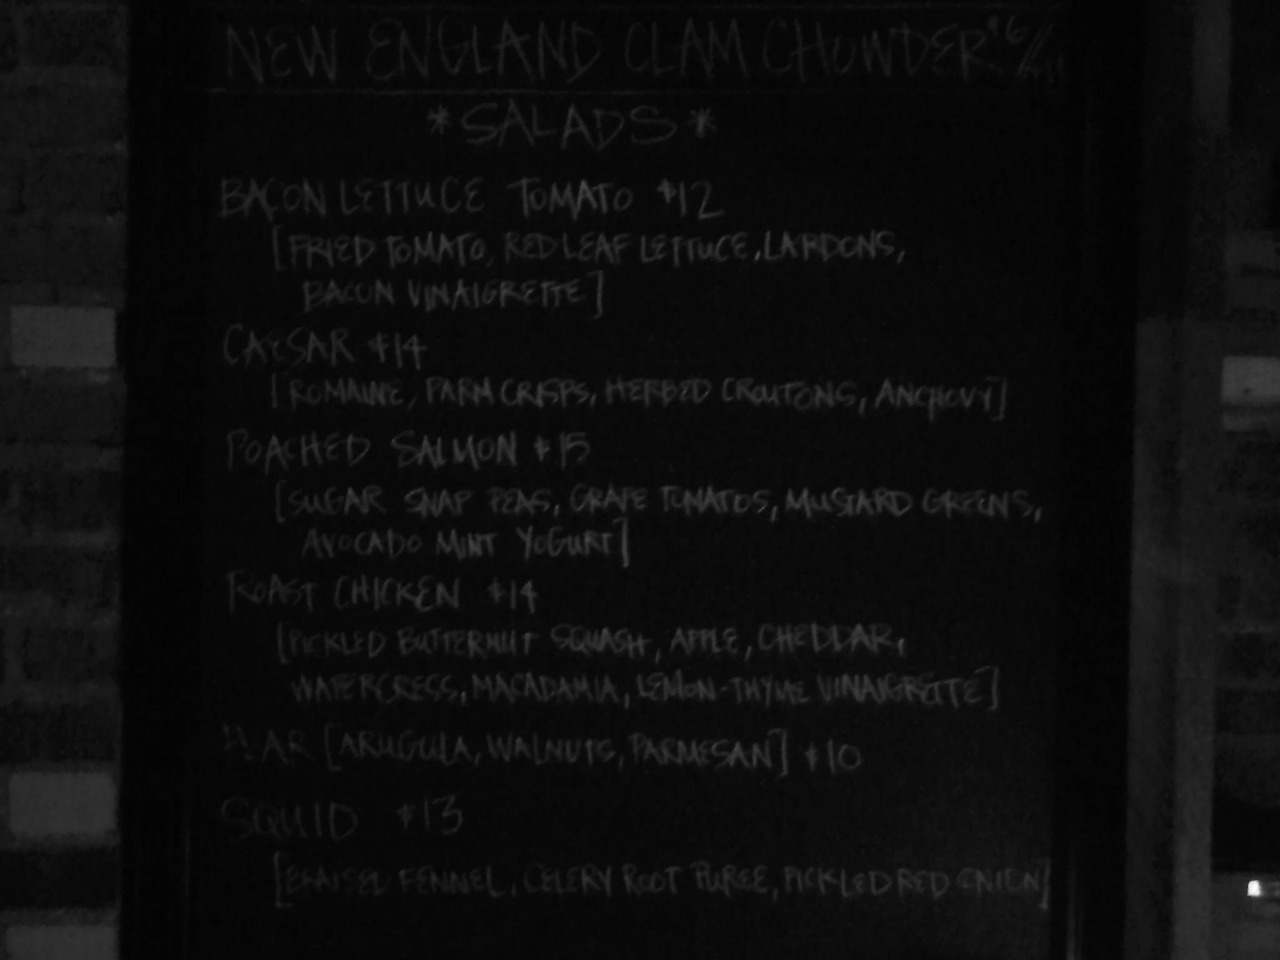 NEW ENGLAND CLAM CHOWDER $6/
*SALADS*
BACON LETTUCE TOMATO $12
[FRIED TOMATO, RED LEAF LETTUCE, LARDONS,
BACON VINAIGRETTE]
CAESAR $14
[ROMAINE, PARM CRISPS, HERBED CROUTONS, ANCHOVY]
POACHED SALMON $15
[SUGAR SNAP PEAS, GRAPE TOMATOS, MUSTARD GREENS,
AVOCADO MINT YOGURT]
ROAST CHICKEN $14
[PICKLED BUTTERNUT SQUASH, APPLE, CHEDDAR,
WATERCRESS, MACADAMIA, LEMON-THYME VINAIGRETTE]
[ARUGULA, WALNUTS, PARMESAN] $10
SQUID $13
[BRAISED FENNEL, CELERY ROOT PUREE, PICKLED RED ONION]